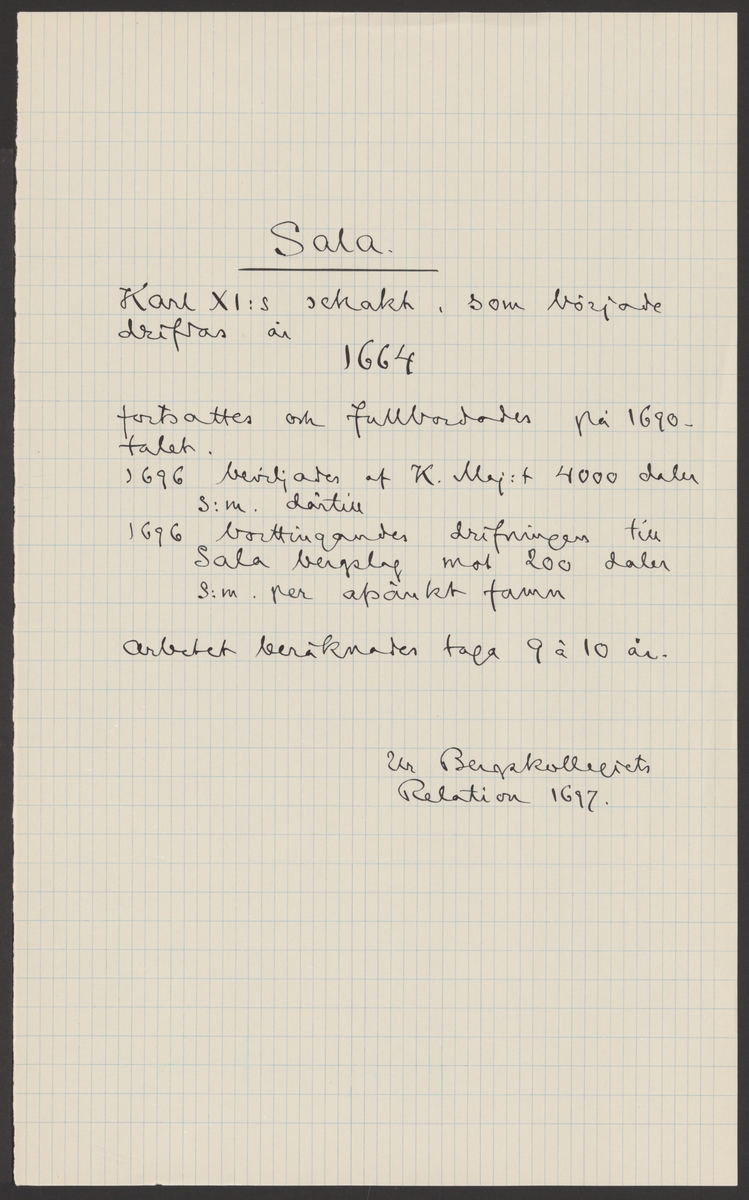 Sala.
Karl XI:s schakt, som började
drifvas år
1664
fortsattes och fullbordades på 1690-
talet.
1696 beviljades af K. Maj:t 4000 daler
s:m. därtill
1696 borttingades drifningen till
Sala bergslag mot 200 daler
s:m. per afsänkt famn
Arbetet beräknades taga 9 à 10 år.
Ur Bergskollegiets
Relation 1697.